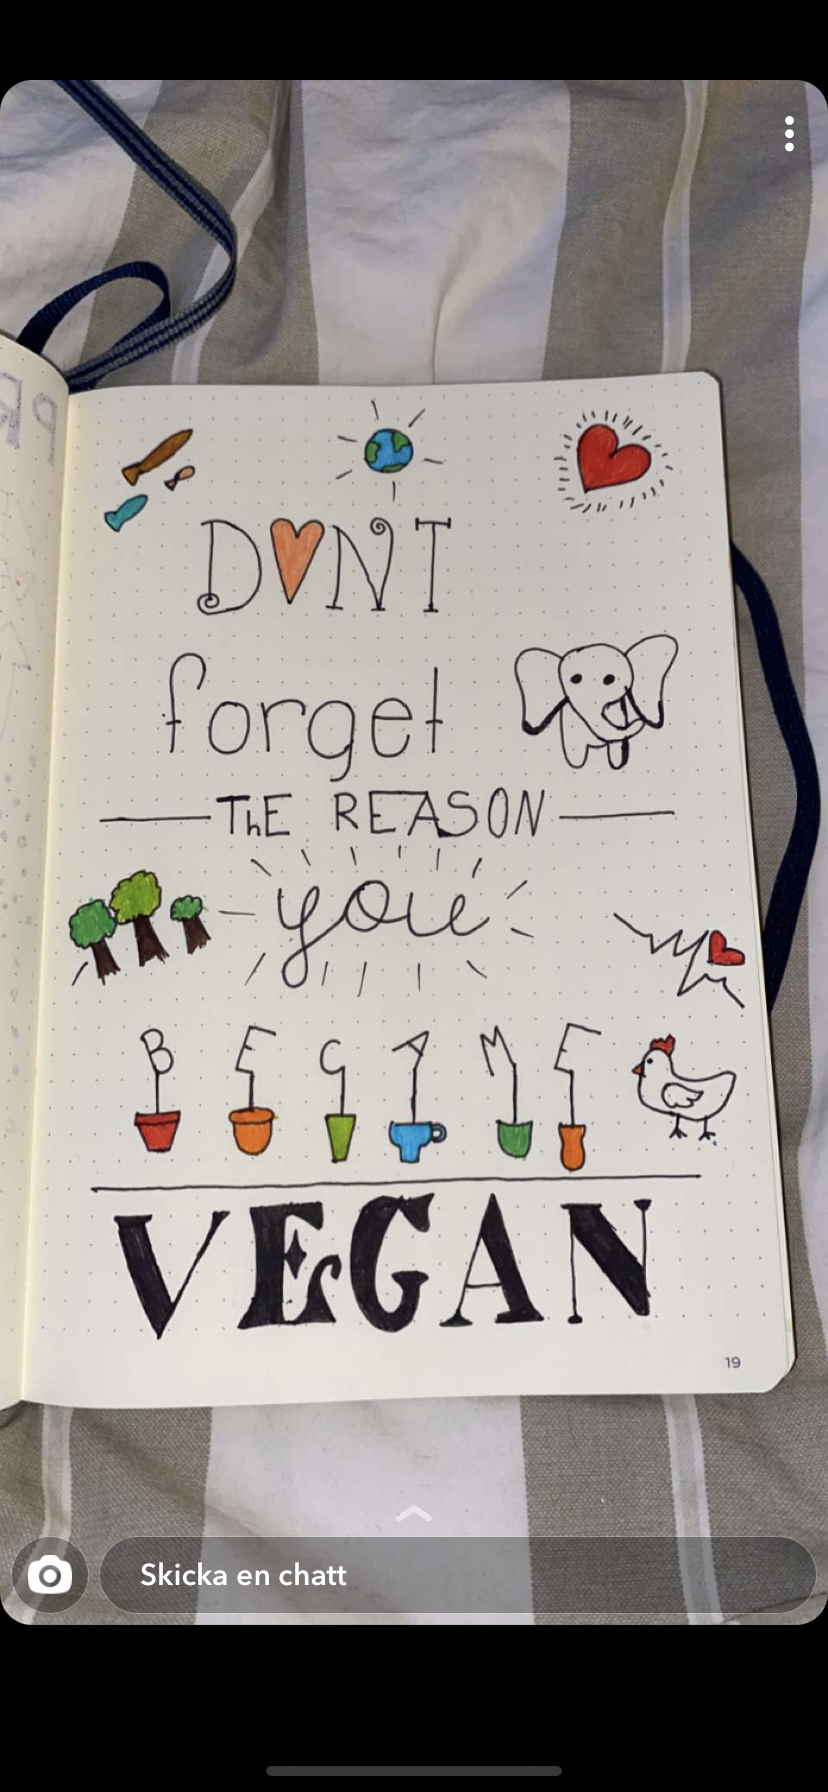 D♥NT
forget
ThE REASON
you
BECAME
VEGAN
19
Skicka en chatt